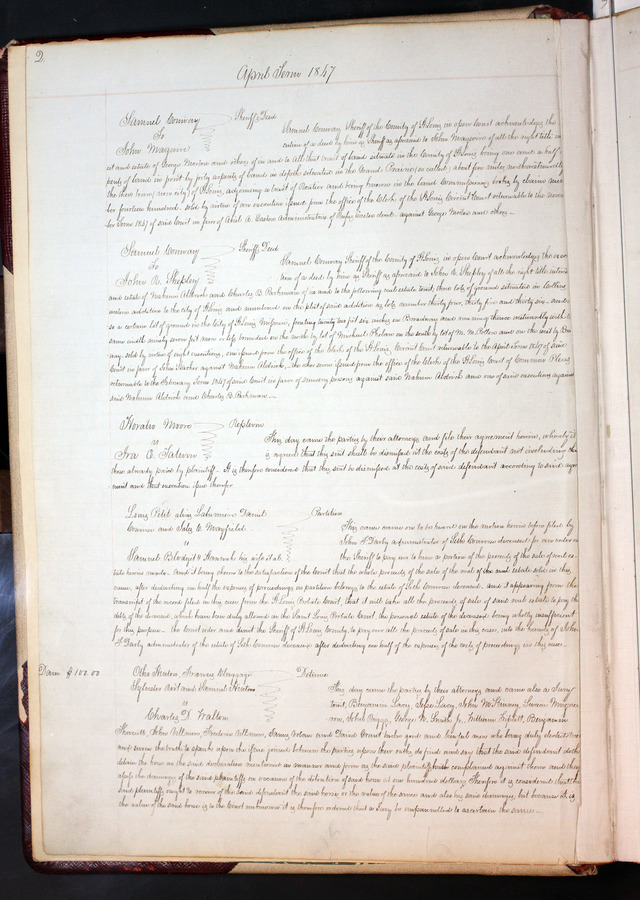 2.
April Term 1847
Samuel Conway Sheriff's Deed
To Samuel Conway Sheriff of the County of St Louis, in open Court acknowledges the
John Maguire execution of a deed by him as Sheriff as aforesaid to John Maguire of all the right title in
est and estate of George and others of in and to all that tract of land situate in the County of St Louis being one and a half
arpents of land in front by forty arpents of land in depth situated in the Grand Prairie so called, about five miles northwestwardly
the then town (now city) of St Louis, adjoining a tract of and being known in the land Commissioners books by claim num
ber fourteen hundred. sold by virtue of an execution issued from the office of the Clerk of the St Louis Circuit Court returnable to the Novem
ber Term 1846 of said Court in favor of Administrator of Rufus Easton and against George and others
Samuel Conway Sheriff's Deed
To Samuel Conway Sheriff of the County of St Louis, in open Court acknowledges the exec
John R. Shepley tion of a deed by him as Sheriff as aforesaid to John R. Shepley of all the right title interest
and estate of Nahum Aldrich and Charles B. Parkman of in and to the following real estate to wit, three lots of ground situated in
addition to the city of St Louis and numbered on the plat of said addition as lots number thirty four, thirty five and thirty six. and
so a certain lot of ground in the city of St Louis Missouri, fronting twenty one feet six inches on Broadway and running thence westwardly with the
same width ninety seven feet more or less bounded on the north by lot of Michael Phelan on the south by lot of and on the east by Broad
way. sold by virtue of eight executions, one issued from the office of the Clerk of the St Louis Circuit Court returnable to the April Term 1847 of said
Court in favor of John against Nahum Aldrich, the other seven issued from the office of the Clerk of the St Louis Court of Common Pleas
returnable to the February Term 1847 of said Court in favor of sundry persons against said Nahum Aldrich and one of said executions against
said Nahum Aldrich and Charles B. Parkman.
Horatio Moore Replevin
vs This day came the parties by their attorneys and file their agreement herein, whereby it
Ira C. is agreed that this suit shall be dismissed at the costs of the defendant not including the
those already paid by plaintiff. It is therefore considered that this suit be dismissed at the costs of said defendant according to said agree
ment and that execution issue therefor
Louis Petit alias Daniel Partition
and Jules C. Mayfield This cause came on to be heard on the motion herein before filed by
vs John F Darby administrator of Seth deceased for an order on
Samuel Blodgit & Hannah his wife et al the Sheriff to pay over to him a portion of the proceeds of the sale of real es
tate herein made. And it being shown to the satisfaction of the Court that the whole proceeds of the sale of the real estate sold in this
cause, after deducting one half the expense of proceedings in partition belongs to the estate of Seth deceased. and it appearing from the
transcript of the record filed in this case from the St Louis Probate Court, that it will take all the proceeds of sale of said real estate to pay the
debts of the deceased, which have been duly allowed in the Saint Louis Probate Court, the personal estate of the deceased being wholly insufficient
for this purpose. the Court order and direct the Sheriff of St Louis County, to pay over all the proceeds of sale in this cause, into the hands of John
F Darby administrator of the estate of Seth deceased after deducting one half of the expense of the costs of proceedings in this cause.
Dam $100.00 Otho Francis Detinue
Sylvester and Samuel This day came the parties by their attorneys and came also a Jury
vs towit, Benjamin Lacy, Lacy, John McKinney,
Charles D. Walton John Briggs, George W. Smith Jr, William Benjamin
John Tillman, Frederic Tillman, James Nolan and David Grant twelve good and lawful men who being duly elected tried
and sworn the truth to speak upon the issue joined between the parties upon their oaths do find and say that the said defendant doth
detain the horse in the said declaration mentioned in manner and form as the said plaintiffs have complained against them and they
assess the damages of the said plaintiffs on occasion of the detention of said horse at one hundred dollars. Therefore it is considered that the
said plaintiffs ought to recover of the said defendant the said horse or the value of the same and also his said damages, but because it is
the value of the said horse is to the Court unknown it is therefore ordered that a Jury be impannelled to ascertain the same.